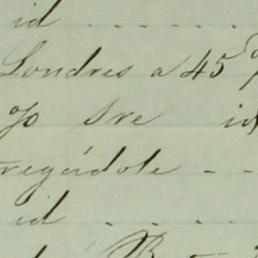 id . . . . . .
Londres a 45
% Sre id
regádole - -
id . . . .